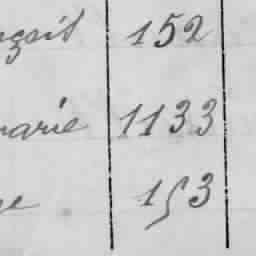 nçois 152
marie 1133
ne 153